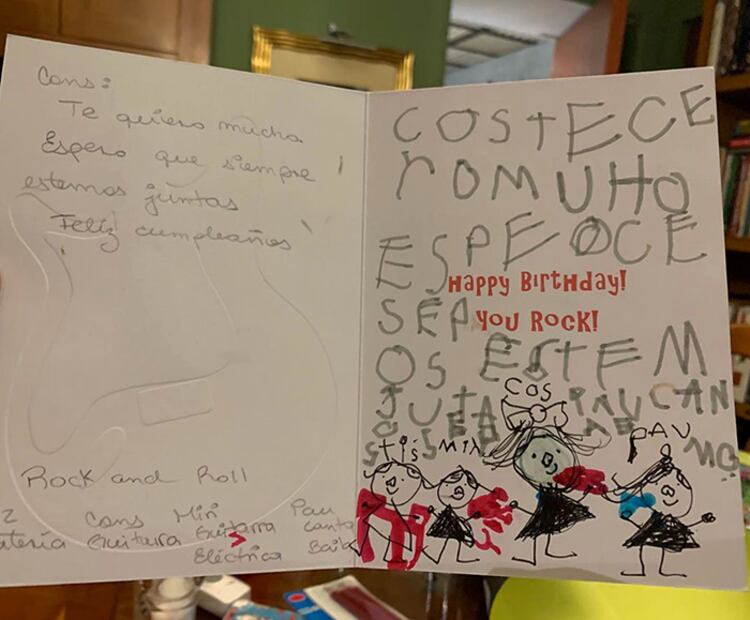 Cons:
Te quiero mucho
Espero que siempre
estemos juntas
Feliz cumpleaños
Rock and Roll
Cons Miri Pau
Guitarra Guitarra canto
Eléctrica Baile
COSTECE
ROMUHO
ESPEOCE
HAPPY BIRTHDAY!
SEP YOU ROCK!
OS ESTEM
JUTA PAU CAN
COS
MIRI PAU